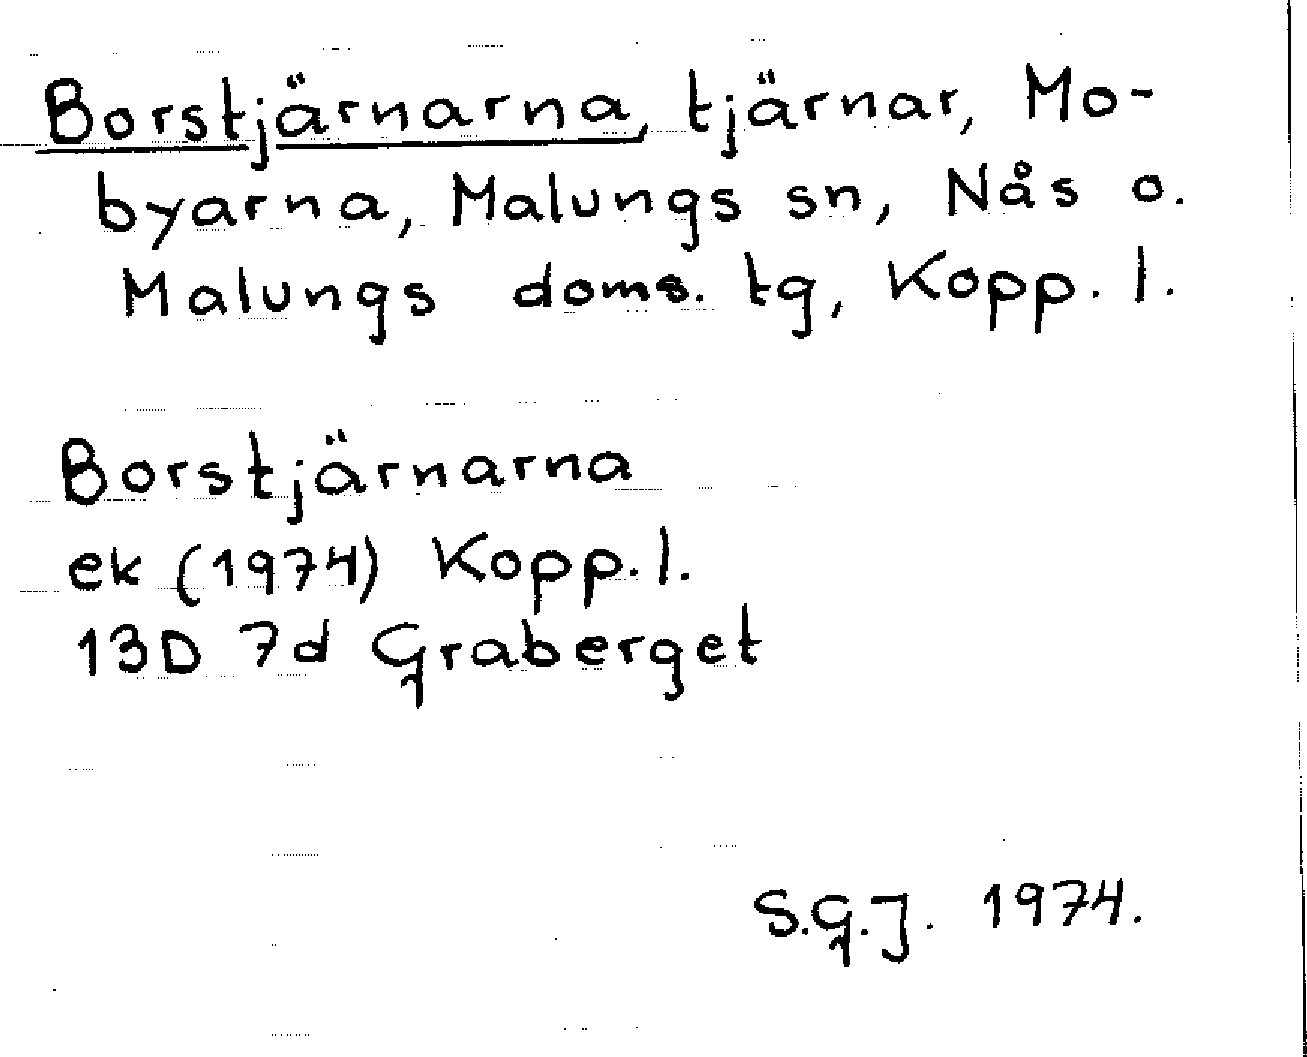 Borstjärnarna, tjärnar, Mo-
byarna, Malungs sn, Nås o.
Malungs doms. tg, Kopp. l.
Borstjärnarna
ek (1974) Kopp. l.
13D 7d Graberget
S.G.J. 1974.